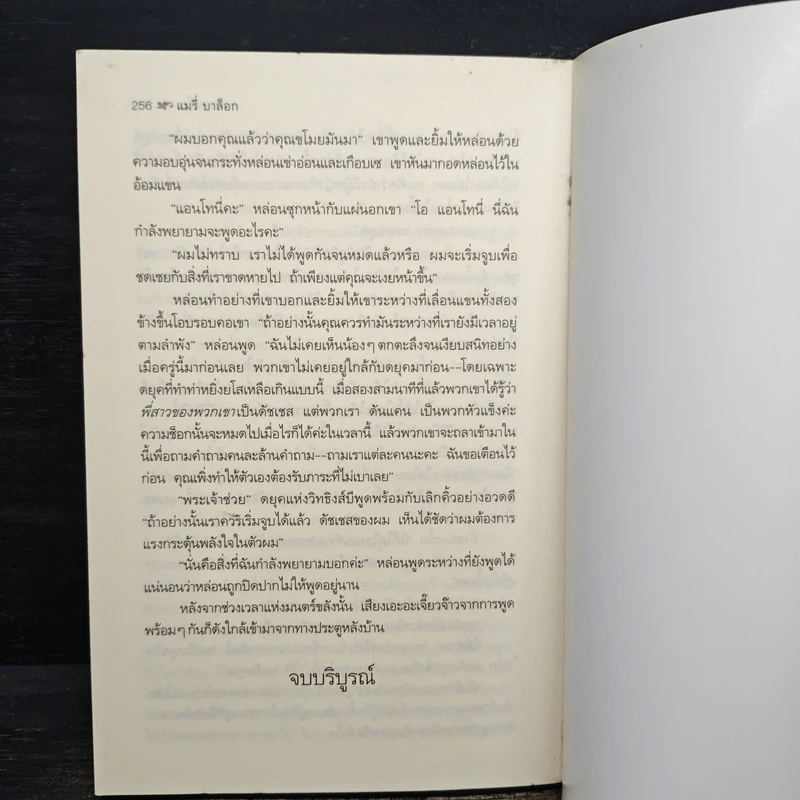 256 แมรี่ บาล็อก
“ผมบอกคุณแล้วว่าคุณขโมยมันมา” เขาพูดและยิ้มให้หล่อนด้วย
ความอบอุ่นจนกระทั่งหล่อนเข่าอ่อนและเกือบเซ เขาหันมากอดหล่อนไว้ใน
อ้อมแขน
“แอนโทนี่คะ” หล่อนซุกหน้ากับแผ่นอกเขา “โอ แอนโทนี่ นี่ฉัน
กำลังพยายามจะพูดอะไรคะ”
“ผมไม่ทราบ เราไม่ได้พูดกันจนหมดแล้วหรือ ผมจะเริ่มจูบเพื่อ
ชดเชยกับสิ่งที่เราขาดหายไป ถ้าเพียงแต่คุณจะเงยหน้าขึ้น”
หล่อนทำอย่างที่เขาบอกและยิ้มให้เขาระหว่างที่เลื่อนแขนทั้งสอง
ข้างขึ้นโอบรอบคอเขา “ถ้าอย่างนั้นคุณควรทำมันระหว่างที่เรายังมีเวลาอยู่
ตามลำพัง” หล่อนพูด “ฉันไม่เคยเห็นน้องๆ ตกตะลึงจนเงียบสนิทอย่าง
เมื่อครู่นี้มาก่อนเลย พวกเขาไม่เคยอยู่ใกล้กับดยุคมาก่อน--โดยเฉพาะ
ดยุคที่ทำท่าหยิ่งยโสเหลือเกินแบบนี้ เมื่อสองสามนาทีที่แล้วพวกเขาได้รู้ว่า
พี่สาวของพวกเขาเป็นดัชเชส แต่พวกเรา ดันแคน เป็นพวกหัวแข็งค่ะ
ความช็อกนั้นจะหมดไปเมื่อไรก็ได้ค่ะในเวลานี้ แล้วพวกเขาจะถลาเข้ามาใน
นี้เพื่อถามคำถามคนละล้านคำถาม--ถามเราแต่ละคนนะคะ ฉันขอเตือนไว้
ก่อน คุณเพิ่งทำให้ตัวเองต้องรับภาระที่ไม่เบาเลย”
“พระเจ้าช่วย” ดยุคแห่งวิทธิงส์บีพูดพร้อมกับเลิกคิ้วอย่างอวดดี
“ถ้าอย่างนั้นเราควรเริ่มจูบได้แล้ว ดัชเชสของผม เห็นได้ชัดว่าผมต้องการ
แรงกระตุ้นพลังใจในตัวผม”
“นั่นคือสิ่งที่ฉันกำลังพยายามบอกค่ะ” หล่อนพูดระหว่างที่ยังพูดได้
แน่นอนว่าหล่อนถูกปิดปากไม่ให้พูดอยู่นาน
หลังจากช่วงเวลาแห่งมนตร์ขลังนั้น เสียงเอะอะเจี๊ยวจ๊าวจากการพูด
พร้อมๆ กันก็ดังใกล้เข้ามาจากทางประตูหลังบ้าน
จบบริบูรณ์